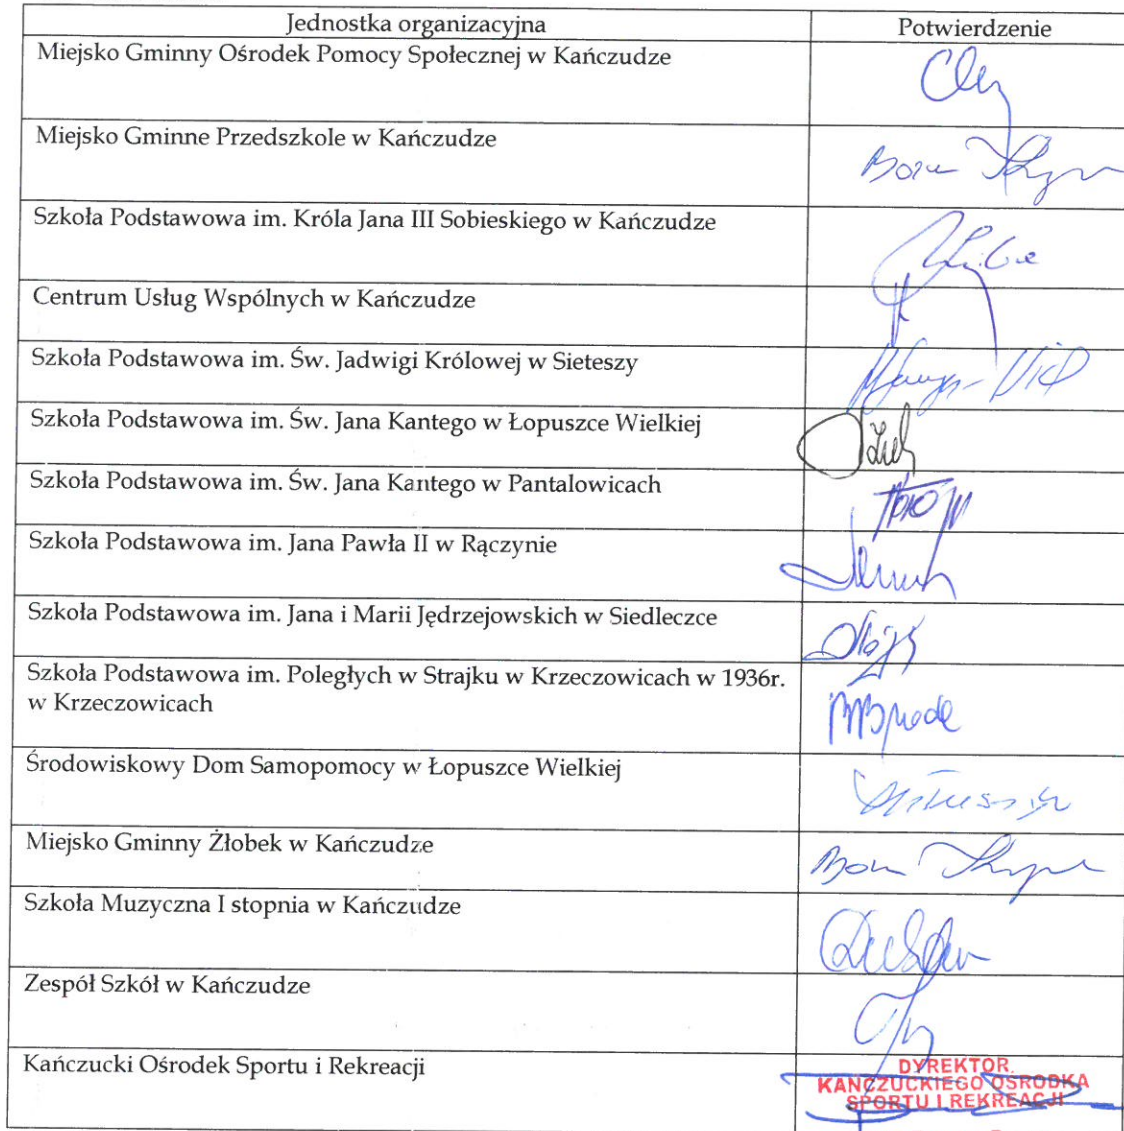 Jednostka organizacyjna Potwierdzenie
Miejsko Gminny Ośrodek Pomocy Społecznej w Kańczudze
Miejsko Gminne Przedszkole w Kańczudze
Szkoła Podstawowa im. Króla Jana III Sobieskiego w Kańczudze
Centrum Usług Wspólnych w Kańczudze
Szkoła Podstawowa im. Św. Jadwigi Królowej w Sieteszy
Szkoła Podstawowa im. Św. Jana Kantego w Łopuszce Wielkiej
Szkoła Podstawowa im. Św. Jana Kantego w Pantalowicach
Szkoła Podstawowa im. Jana Pawła II w Rączynie
Szkoła Podstawowa im. Jana i Marii Jędrzejowskich w Siedleczce
Szkoła Podstawowa im. Poległych w Strajku w Krzeczowicach w 1936r.
w Krzeczowicach
Środowiskowy Dom Samopomocy w Łopuszce Wielkiej
Miejsko Gminny Żłobek w Kańczudze
Szkoła Muzyczna I stopnia w Kańczudze
Zespół Szkół w Kańczudze
Kańczucki Ośrodek Sportu i Rekreacji
DYREKTOR
KAŃCZUCKIEGO OŚRODKA
SPORTU I REKREACJI